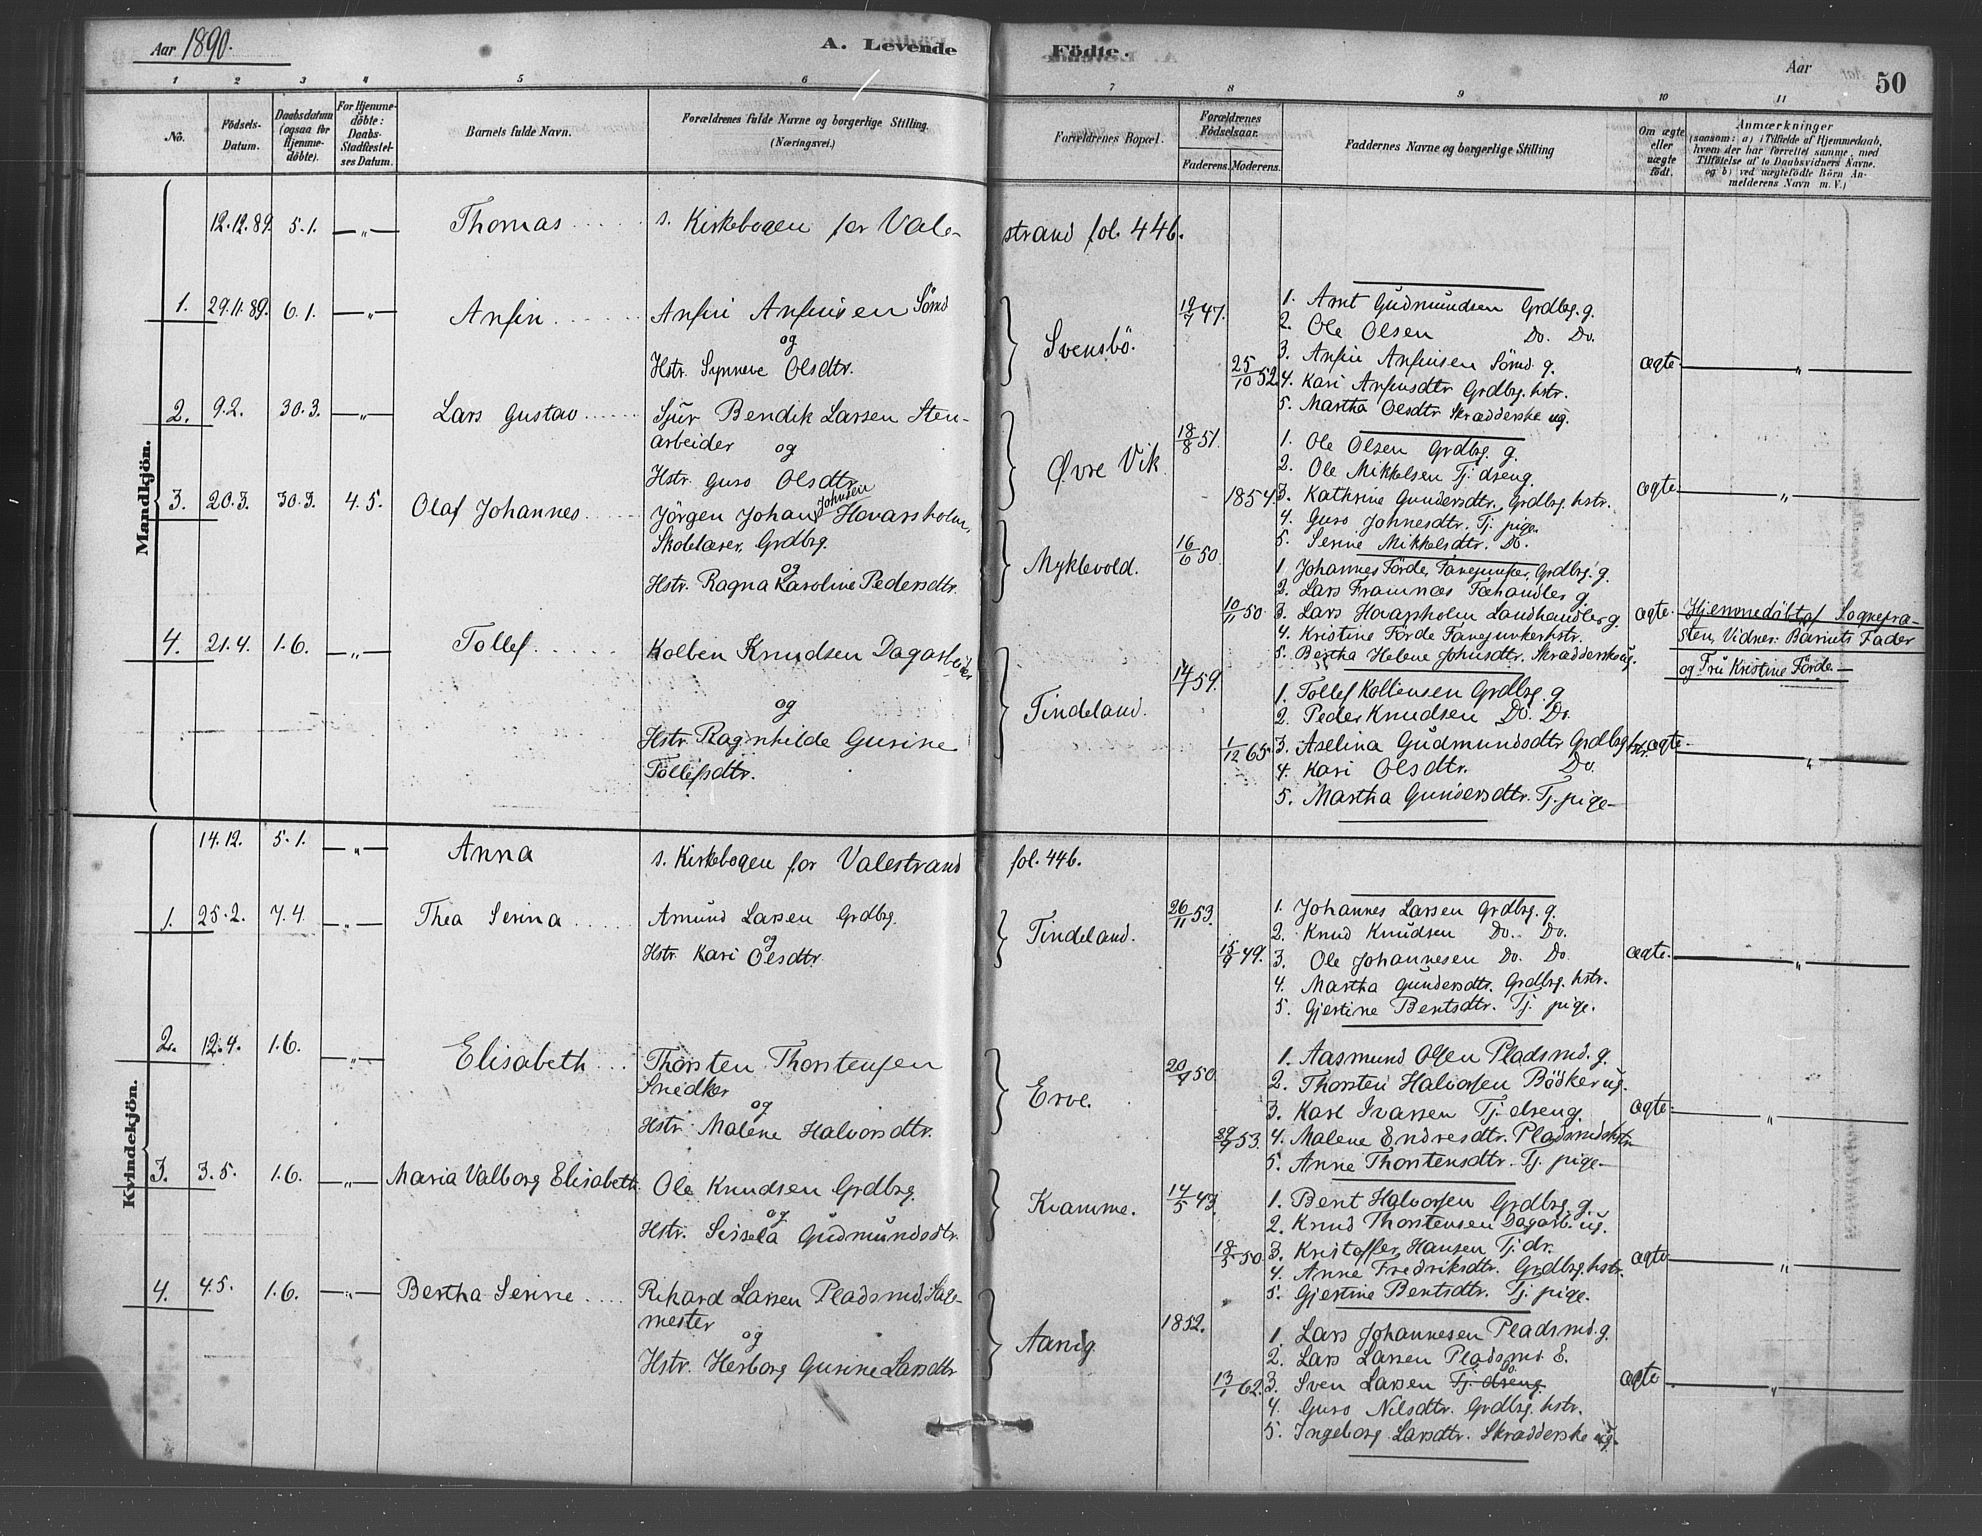 Aar 1890.
A. Levende Födte.
Aar
50
1 2 3 4 5 6 7 8 9 10 11
Nô.
Födsels-Datum.
Daabsdatum (ogsaa for Hjemme-döbte).
For Hjemme-döbte: Daabs-Stadfæstel-ses Datum.
Barnets fulde Navn.
Forældrenes fulde Navne og borgerlige Stilling.
(Næringsvei.)
Forældrenes Bopæl.
Forældrenes Födselsaar.
Faderens. Moderens.
Faddernes Navne og borgerlige Stilling
Om ægte eller uægte födt.
Anmærkninger
(saasom: a) i Tilfælde af Hjemmedaab, hvem der har forrettet samme, med Tilföielse af to Daabsvidners Navne. og b) ved uægtefödte Börn An-melderens Navn m. V.)
Mandkjön.
12.12.89. 5.1. —„— Thomas s. Kirkebogen for Vale-strand fol. 446.
1. 29.11.89. 6.1. —„— Anfin
Anfin Anfinsen Smd
og
Hstr. Synneve Olsdtr.
Svensbö.
19/7 47.
25/10 52
1. Arnt Gudmundsen Grdbrg. g.
2. Ole Olsen Do. Do.
3. Anfin Anfinsen Smd. g.
4. Kari Anfinsdtr Grdbrg. hstr.
5. Martha Olsdtr Skrædderske ug.
ægte —„—
2. 9.2. 30.3. —„— Lars Gustav
Sjur Bendik Larsen Sten-
arbeider og
Hstr. Guro Olsdtr
Øvre Vik
18/8 51.
1854
1. Ole Olsen Grdbrg. g.
2. Ole Mikkelsen Tj. dreng.
3. Kathrine Gundersdtr. Grdbrg. hstr.
4. Guro Johnesdtr. Tj. pige.
5. Serine Mikkelsdtr. Do.
ægte —„—
3. 20.3. 30.3. 4.5. Olaf Johannes
Jörgen Johan Johnsen Hovarsholm,
Skolelærer, Grdbrg.
og
Hstr. Ragna Karoline Pedersdtr.
Myklevold.
16/6 50.
10/11 50
1. Johannes Förde, Fanejunker, Grdbrg. g.
2. Lars Framnæs Fæhandler g.
3. Lars Hovarsholm Landhandler g.
4. Kristine Förde Fanejunkerhstr.
5. Bertha Helene Johnsdtr. Skrædderske ug.
ægte.
Hjemmedöbt af Sognepræ-
sten, Vidner: Barnets Fader
og Fru Kristine Förde —
4. 21.4. 1.6. —„— Tollef
Kolben Knudsen Dagarbeider
og
Hstr. Ragnhilde Gurine
Tollefsdtr.
Tindeland.
14/1 59.
1/12 65
1. Tollef Kolbensen Grdbrg. g
2. Peder Knudsen Do. Do.
3. Aselina Gudmundsdtr Grdbrg hstr.
4. Kari Olsdtr. Do.
5. Martha Gundersdtr. Tj. pige —
ægte —„—
Kvindekjön.
14.12. 5.1. —„— Anna s. Kirkebogen for Valestrand fol. 446.
1. 25.2. 7.4. —„— Thea Serina
Amund Larsen Grdbrg.
og
Hstr Kari Olsdtr.
Tindeland.
26/11 53.
15/9 49.
1. Johannes Larsen Grdbrg. g.
2. Knud Knudsen Do. Do.
3. Ole Johannesen Do. Do.
4. Martha Gundersdtr. Grdbrg. hstr.
5. Gjertine Bentsdtr. Tj. pige.
ægte. —„—
2. 12.4. 1.6. —„— Elisabeth
Thorsten Thorstensen
Snedker
og
Hstr. Malene Halvorsdtr.
Erve.
20/9 50
53.
1. Aasmund Olsen Pladsmd. g.
2. Thorsten Halvorsen Bödker ug.
3. Karl Ivarsen Tj. dreng.
4. Malene Endresdtr. Pladsmdshstr
5. Anne Thorstensdtr. Tj. pige —
ægte —„—
3. 3.5. 1.6. —„— Maria Valborg Elisabeth.
Ole Knudsen Grdbrg.
og
Hstr. Sissela Gudmundsdtr.
Kvamme.
14/5 43.
18/5 50
1. Bent Halvorsen Grdbrg. g.
2. Knud Thorstensen Dagarb. ug.
3. Kristoffer Hansen Tj. dr.
4. Anne Fredriksdtr. Grdbrg. hstr.
5. Gjertine Bentsdtr. Tj. pige.
ægte —„—
4. 4.5. 1.6. —„— Bertha Serine
Rikard Larsen Pladsmd. Sage-
mester
og
Hstr. Herborg Gurine Larsdtr
Aarvig
1852.
13/1 62.
1. Lars Johannesen Pladsmd. g.
2. Lars Larsen Pladsmd. E.
3. Sven Larsen Tj. dreng. Do
4. Guro Nilsdtr. Grdbrg. hstr.
5. Ingeborg Larsdtr. Skrædderske ug.
ægte —„—